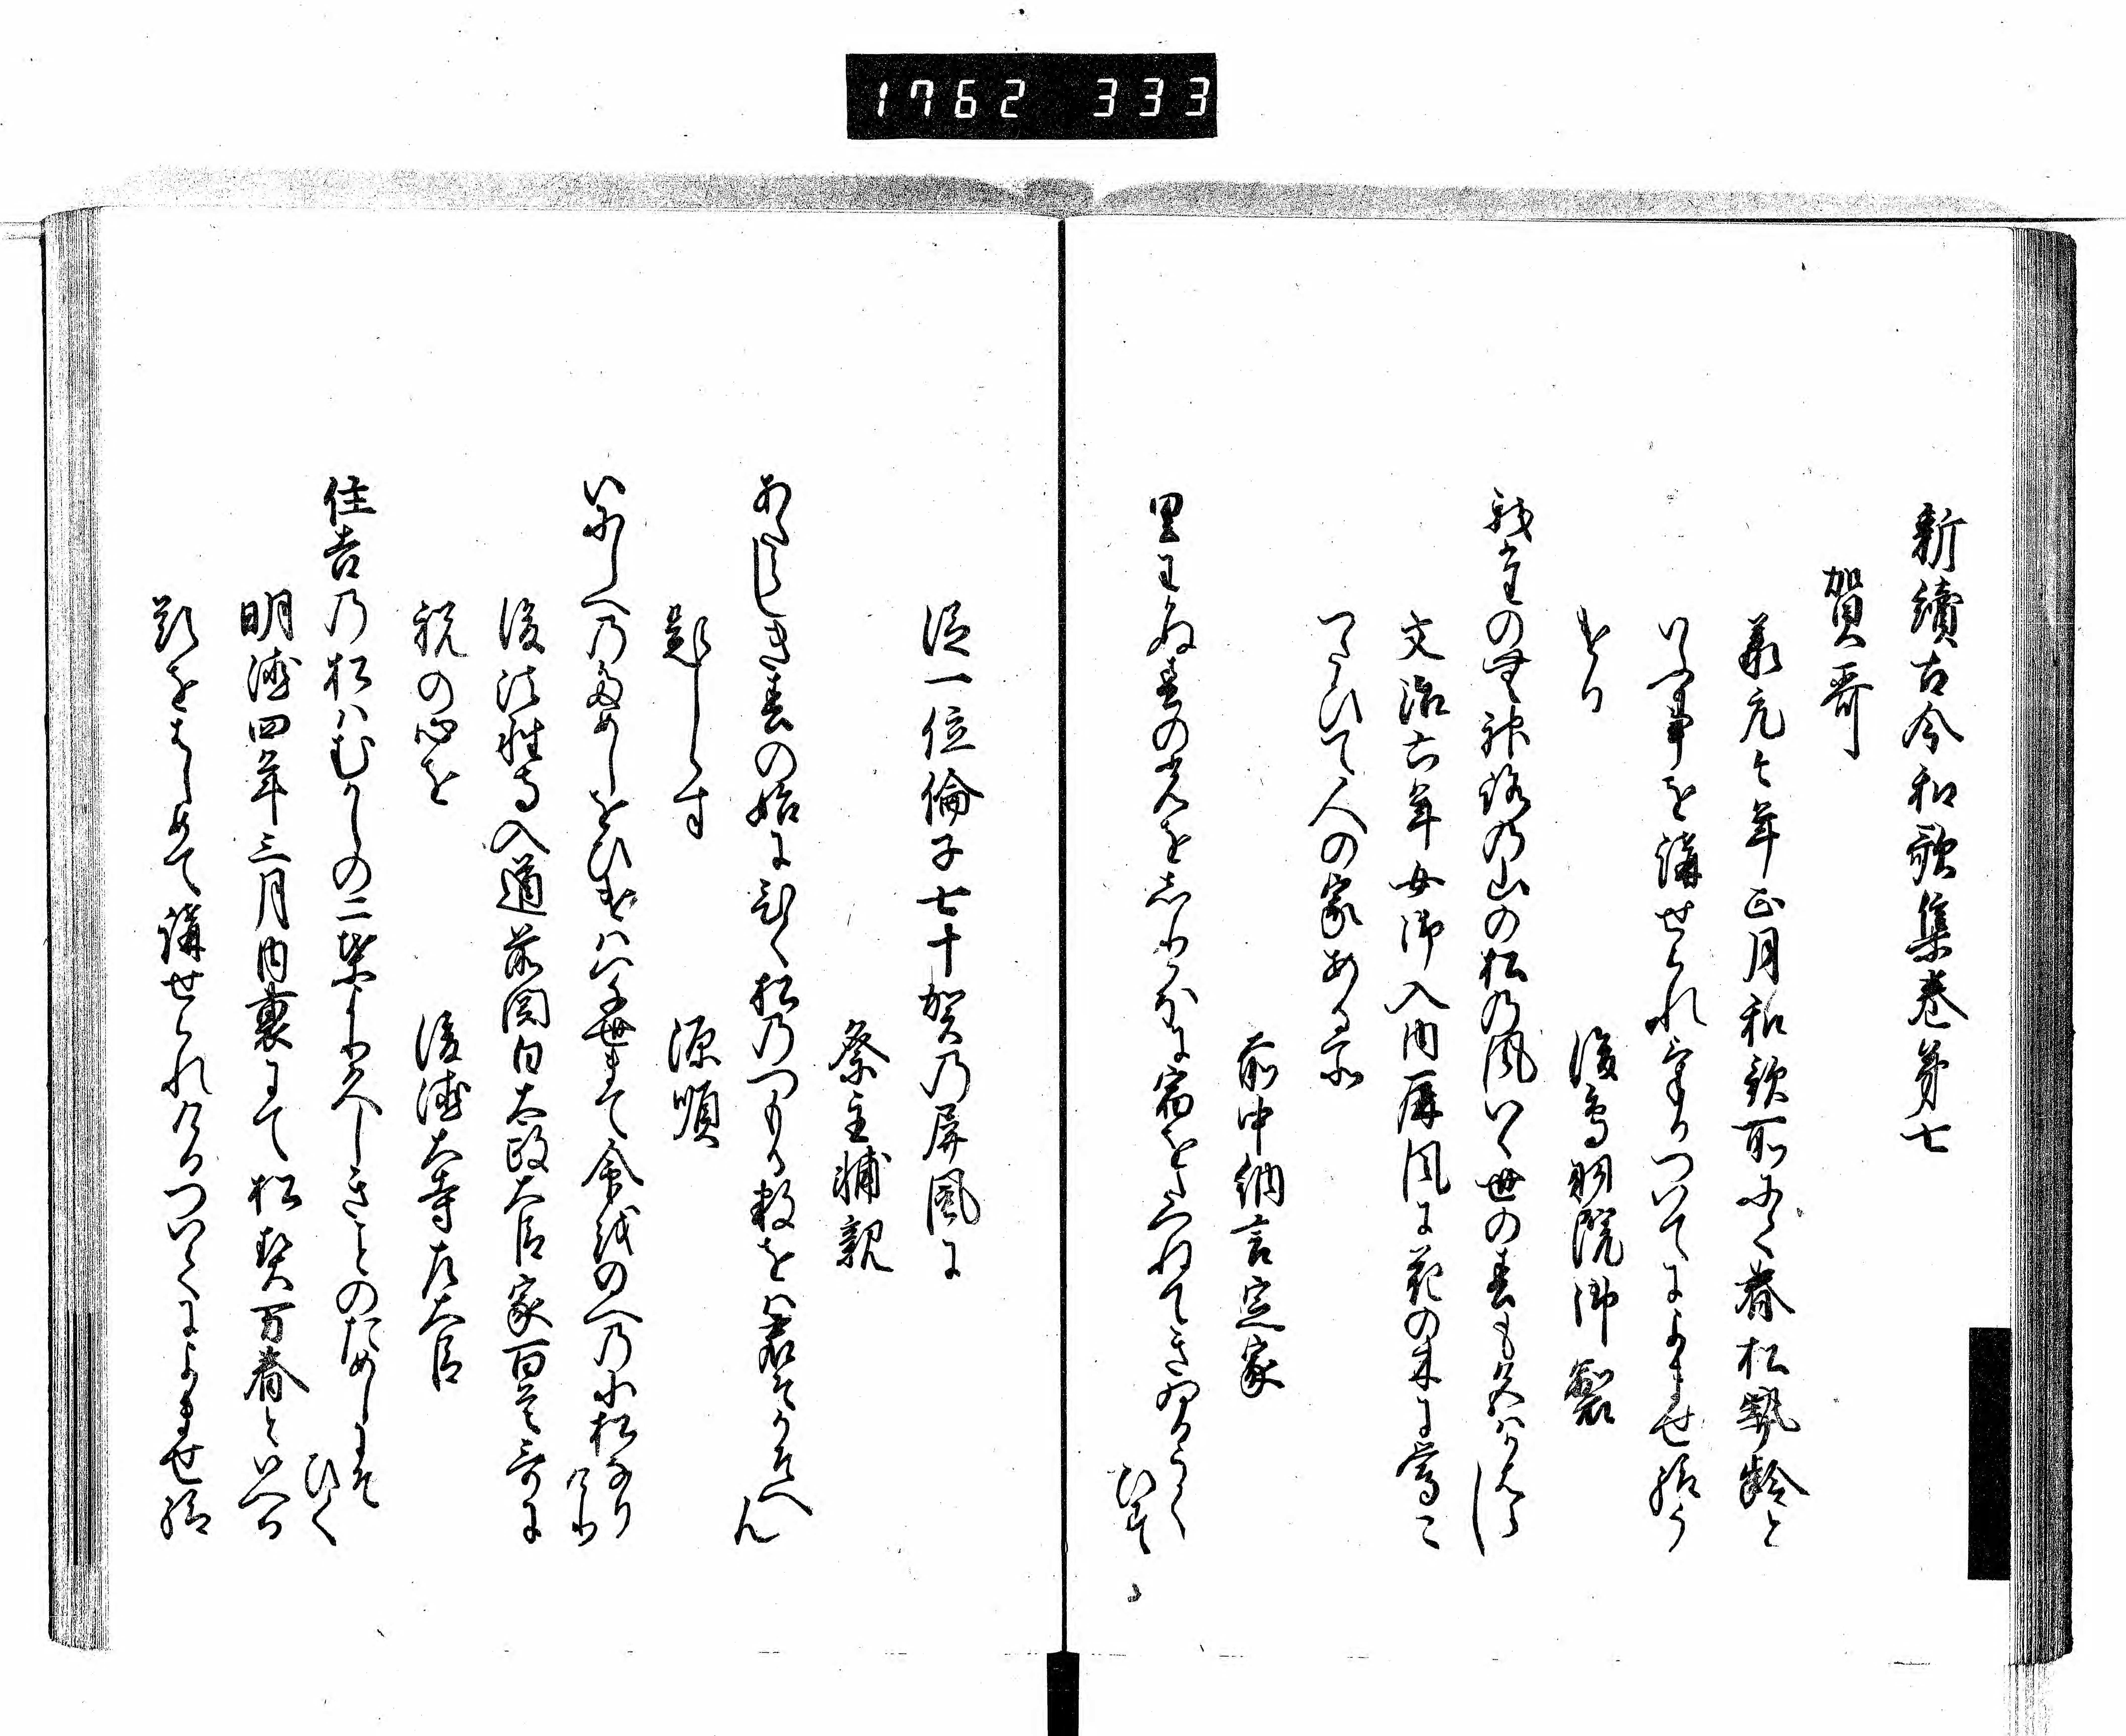 1762 333
新續古今和歌集巻第七
賀哥
承元々年正月和歌所にて春松契齢と
いふ事を講せられけるついてによませ給う
ける
後鳥羽院御製
我まつの神路の山の松の風いく世の春も久はかはらし
文治六年女御入内屏風に花の木に鶯こ
つたひて人の家ある所
前中納言定家
里わかぬ春の光をしりかほに宿をたつねてきゐるうくひす
従一位倫子七十賀乃屏風に
祭主輔親
あたらしき春の始にひく松乃つもる数をは君そかそへん
題しらす
源順
いにしへ乃ためしをひけは八千世まて命を野への小松なりけり
後法性寺入道前関白太政大臣家百首哥に
祝の心を
後徳大寺左大臣
住吉乃松はむかしの二葉よりひさしきことのためしにそひく
明徳四年三月内裏にて松契万春といへる
題をはしめて講せられけるついてによませ給